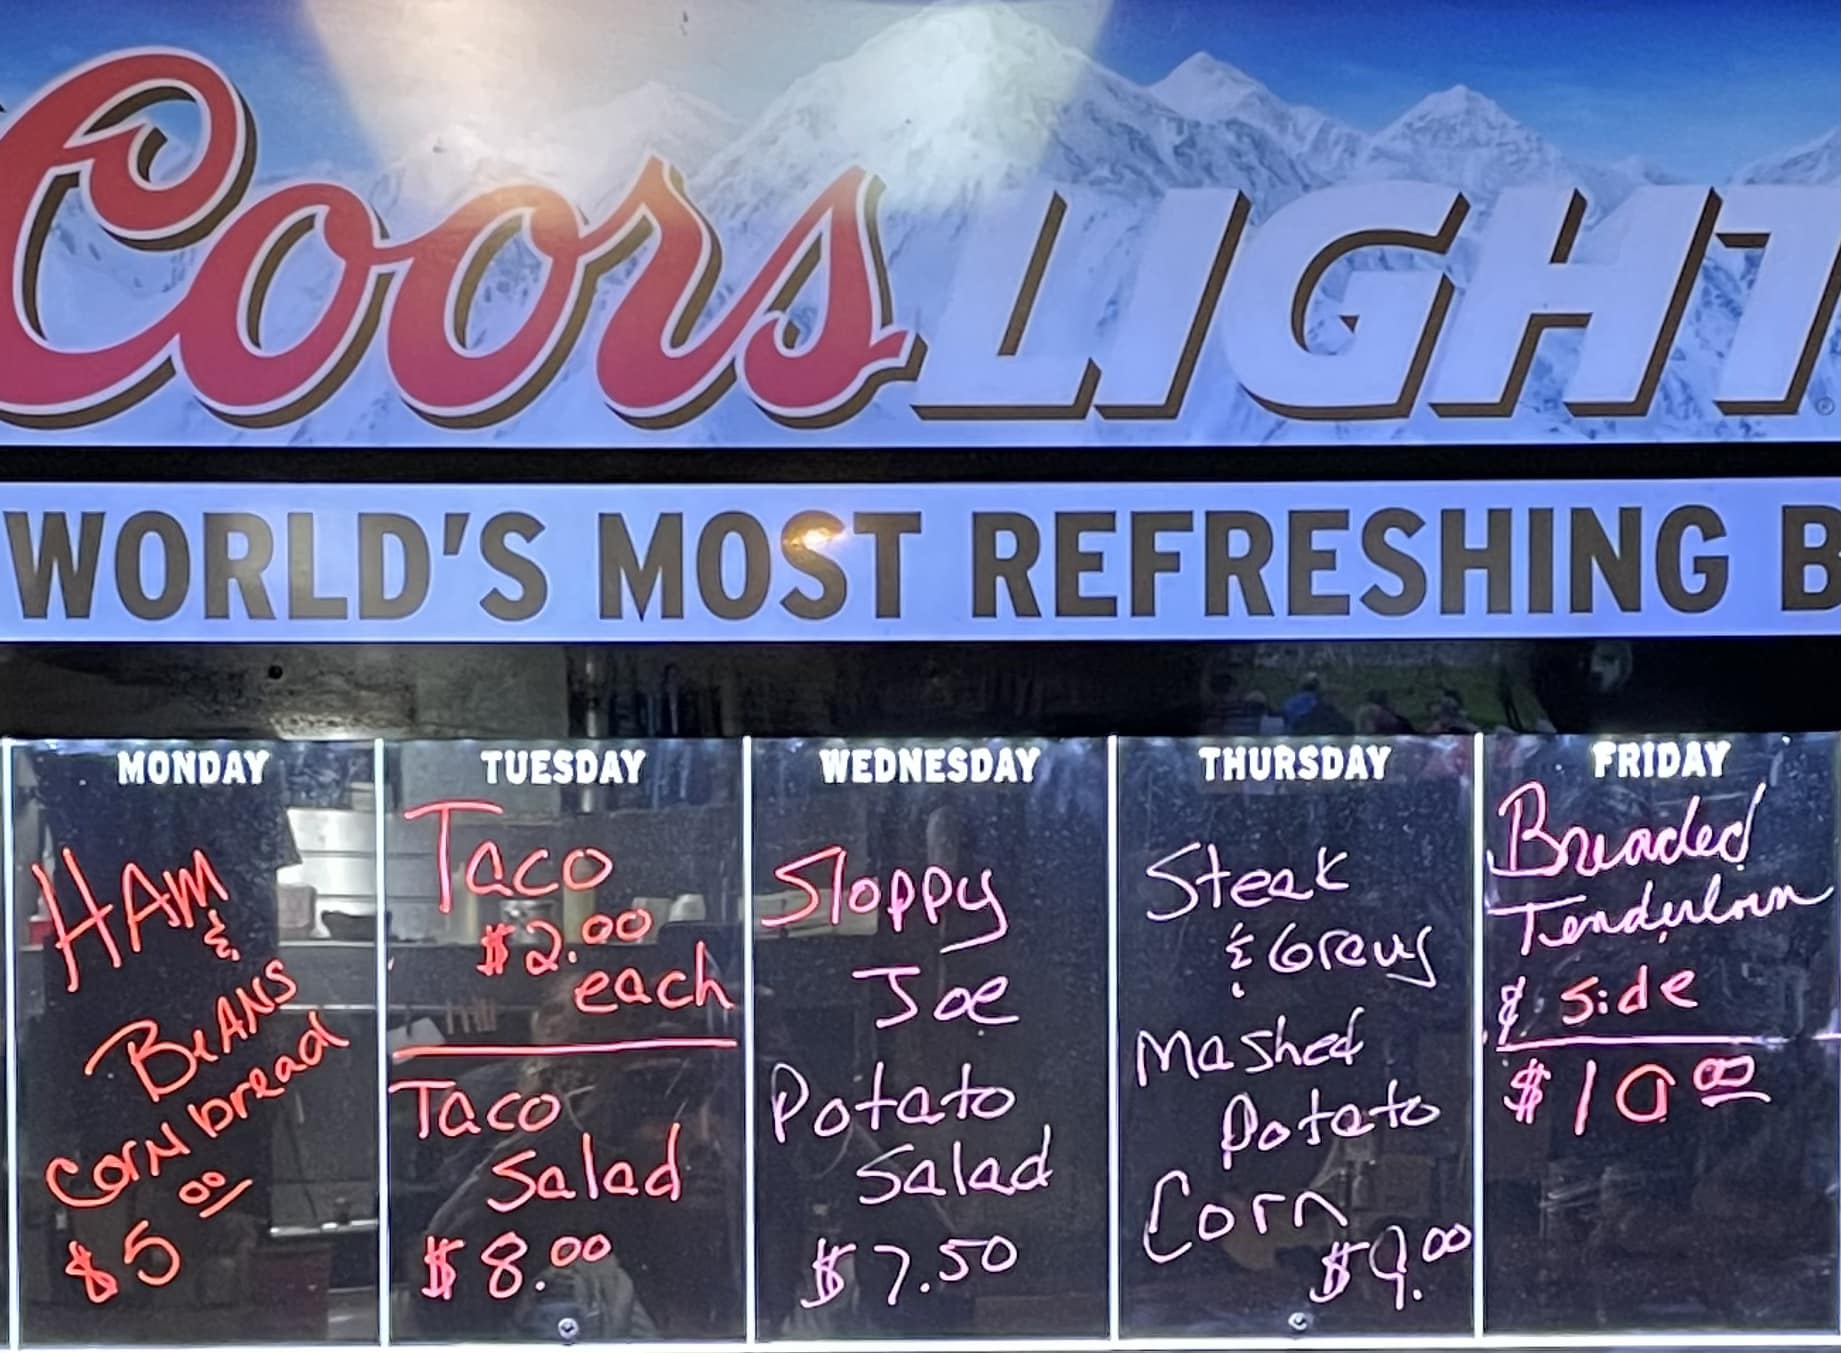 Coors LIGHT
WORLD'S MOST REFRESHING B
MONDAY
HAM
&
BEANS
Cornbread
$5 00
TUESDAY
Taco
$2.00
each
Taco
Salad
$8.00
WEDNESDAY
Sloppy
Joe
Potato
Salad
$7.50
THURSDAY
Steak
& Gravy
Mashed
Potato
Corn
$9.00
FRIDAY
Breaded
Tenderloin
& Side
$10 00